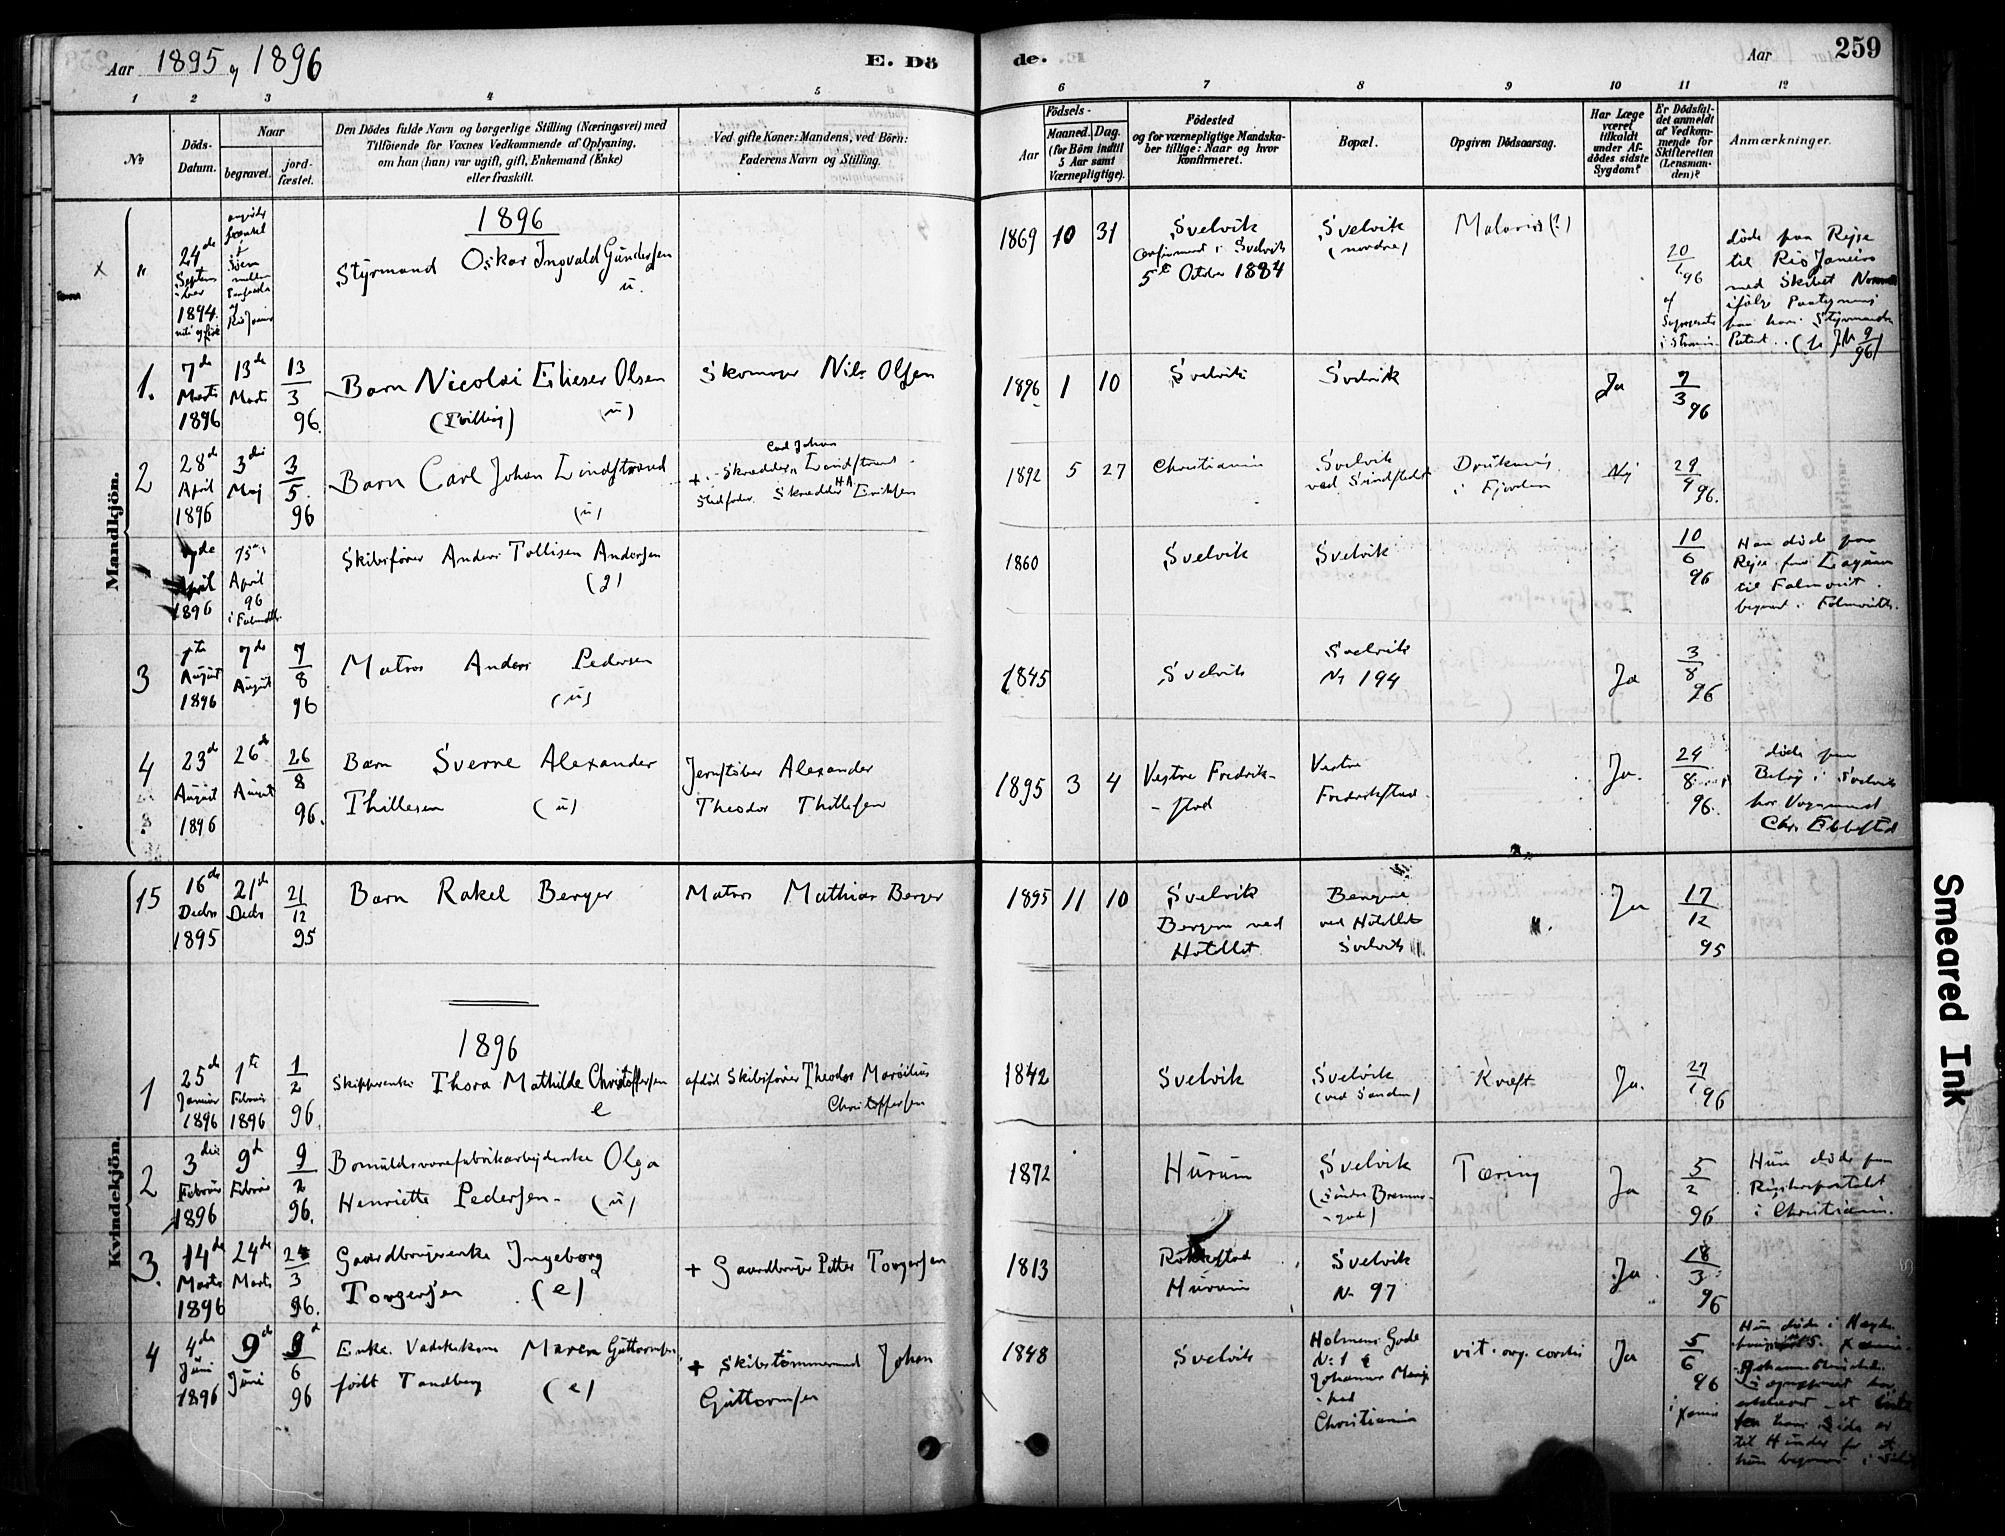 Aar 1895 og 1896
E. Dö
de.
Aar
259
1 2 3 4 5 6 7 8 9 10 11 12
No
Döds-
Datum.
Naar
begravet.
jord-
fæstet.
Den Dödes fulde Navn og borgerlige Stilling (Næringsvei) med
Tilföiende for Voxnes Vedkommende af Oplysning,
om han (hun) var ugift, gift, Enkemand (Enke)
eller fraskilt.
Ved gifte Koner: Mandens, ved Börn:
Faderens Navn og Stilling.
Födsels-
Aar
Maaned. Dag.
(for Börn indtil
5 Aar samt
Værnepligtige).
Födested
og for værnepligtige Mandska-
ber tillige: Naar og hvor
Konfirmeret.
Bopæl.
Opgiven Dödsaarsag.
Har Læge
været
tilkaldt
under Af-
dödes sidste
Sygdom?
Er Dödsfal-
det anmeldt
af Vedkom-
mende for
Skifteretten
(Lensman-
den)?
Anmærkninger.
Mandkjön.
1896
x " 24de
Septem
ber
1894.
Styrmand Oskar Ingvald Gundersen
u.
1869 10 31
Svelvik
Confirmeret i Svelvik
5te October 1884
Svelvik
(nordre)
Malaria (?)
20
1 96
døde paa Rejse
til Rio Janeiro
med Skibet
ifølge
fra hans Styrmands
1.
7de
Marts
1896
13de
Marts
13
3
96.
Barn Nicolai Elieser Olsen
(Tvilling) (u)
Skomager Nils Olsen
1896 1 10
Svelvik
Svelvik
Ja
7
3 96
2
28de
April
1896
3die
Maj
3
5.
96
Barn Carl Johan Lindstrand
(u)
Carl Johan
+ Skrædder Lindstrand
Stedfader Skrædder HA Eriksen
1892 5 27
Christiania
Svelvik
Druknet
i Fjorden
Nej
29
4 96.
7de
April
1896
15de
April
96
i Falmouth
Skibsfører Anders Tollisen Andersen
(g)
1860
Svelvik
Svelvik
10
6
96
Han døde paa
Rejse fra Laguna
til Falmouth.
begravet i Falmouth.
3
1te
August
1896
7de
August
7
8
96
Matros Anders Pedersen
(u)
1845
Svelvik
Svelvik
No 194
Ja
3
8
96
4
23de
August
1896
26de
August
26
8
96.
Barn Sverre Alexander
Thillesen (u)
Jernstøber Alexander
Theodor Thillesen
1895 3 4
Vestre Fredrik-
-stad
Vestre
Fredrikstad
Ja.
24
8
96.
døde paa
Besøg i Svelvik
hos Vognmand
Chr. Ebbestad
Kvindekjön.
15
16de
Decbr
1895
21de
Decbr
21
12
95
Barn Rakel Berger
Matros Mathias Berger
1895 11 10
Svelvik
Bergerne ved
Hotellet
Bergerne
ved Hotellet
Svelvik
Ja
17
12
95
1896
1
25de
Januar
1896
1te
Februar
1896
1
2
96.
Skipperenke Thora Mathilde Christoffersen
e
afdød Skibsfører Theodor Marsilius
Christoffersen
1842
Svelvik
Svelvik
(ved Sanden)
Kræft
Ja.
27
1 96
2
3die
Februar
1896
9de
Februar
9
2
96.
Bomuldsvarefabrikarbejderske Olga
Henriette Pedersen - (u)
1872
Hurum
Svelvik
Tæring
Ja
5
2
96
Hun døde paa
Rigshospitalet
i Christiania.
3.
14de
Marts
1896
24de
Marts
24
3
96.
Gaardbrugerenke Ingeborg
Torgersen (e)
+ Gaardbruger Petter Torgersen
1813
Rökkestad
Hurum
Svelvik
No 97
Ja.
18
3
96
4
4de
Juni
1896
9de
Juni
9
6
96
Enke. Vadskekone Maren Guttormsen
født Tandberg (e)
+ Skibstømmermand Johan
Guttormsen
1848
Svelvik
Holmens Gade
No 1
Christiania
vit. org. cordis
Ja
5
6
96
Hun døde i
Smeared Ink